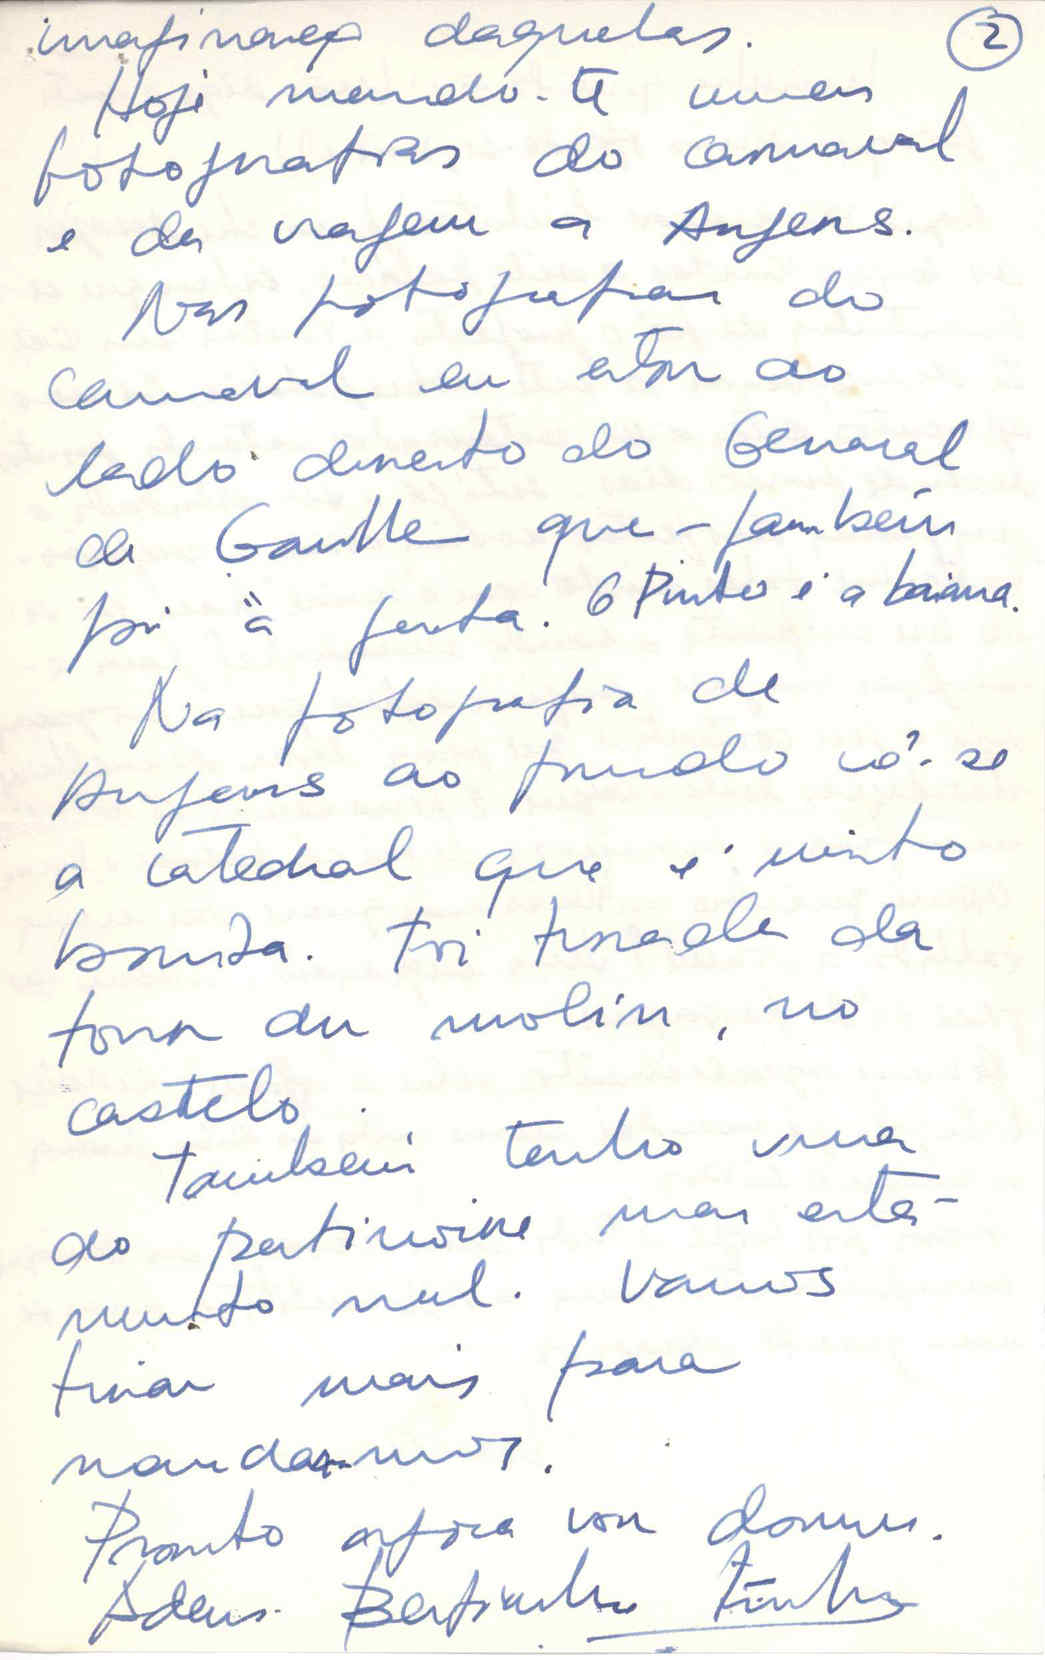 daquelas. 2
Hoje mando-te umas
fotografias do carnaval
e da viagem a Angers.
Nas fotografias do
carnaval eu estou ao
lado direito do General
de Gaulle que também
foi à festa. O Pinto é a baiana.
Na fotografia de
Angers ao fundo vê-se
a catedral que é muito
bonita. Foi tirada da
tour du molin, no
castelo.
Também tenho uma
do patinoire mas está
muito mal. Vamos
tirar mais para
mandarmos.
Pronto agora vou dormir.
Adeus. Beijinhos